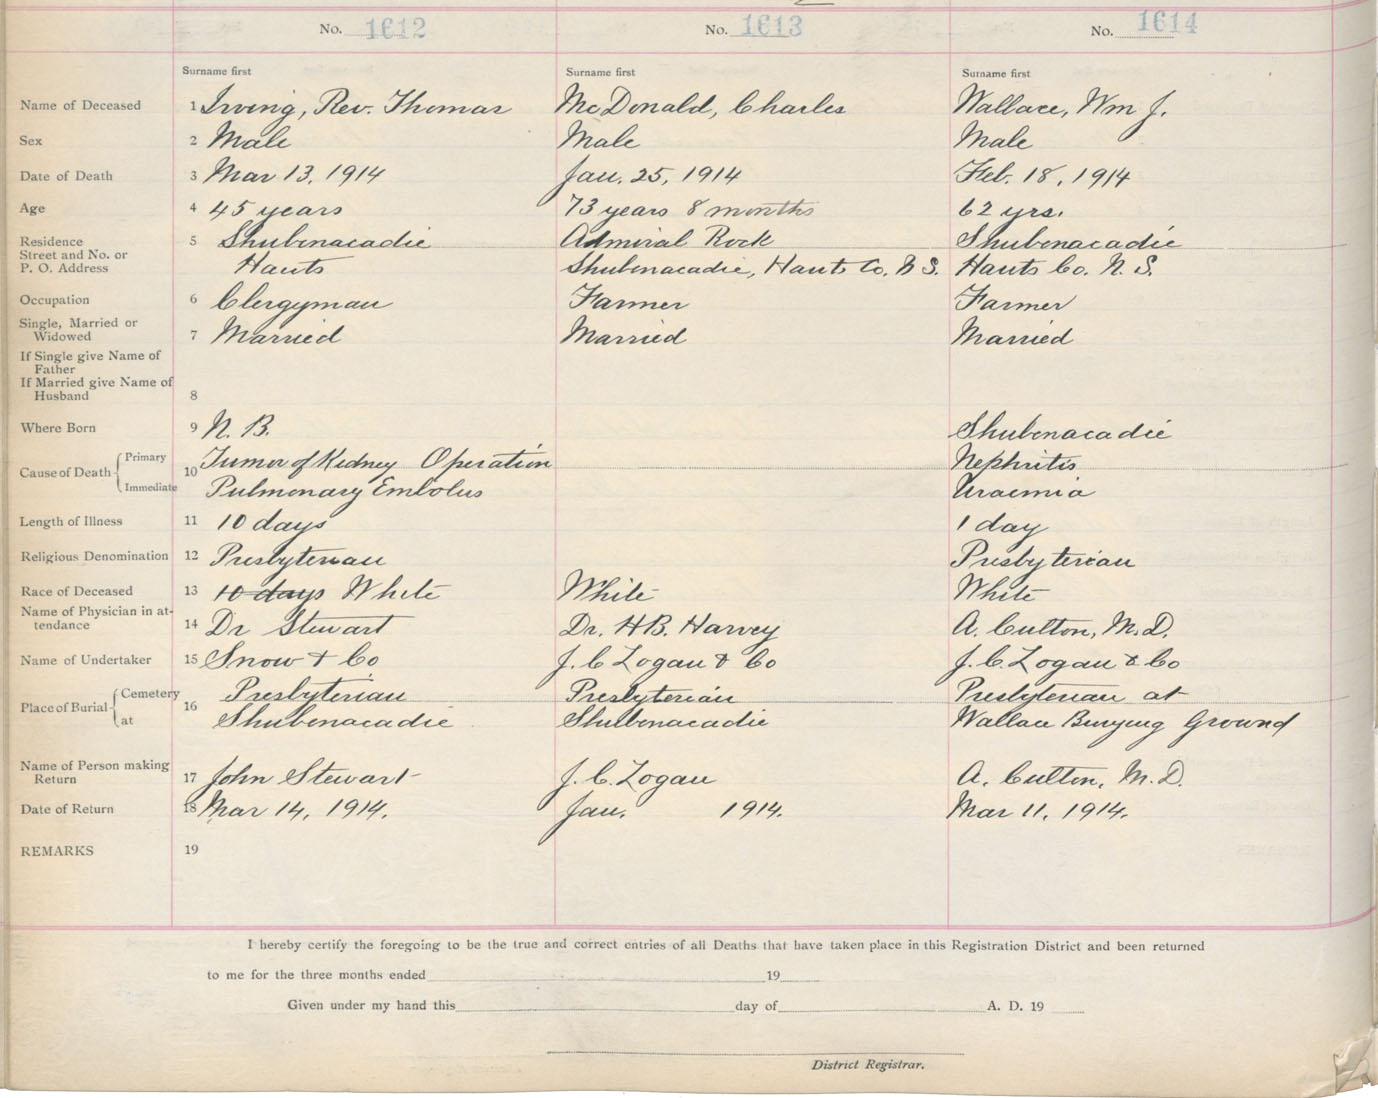 No. 1612 No. 1613 No. 1614
Surname first Surname first Surname first
Name of Deceased 1 Irving, Rev. Thomas McDonald, Charles Wallace, Wm J.
Sex 2 Male Male Male
Date of Death 3 Mar 13, 1914 Jan. 25, 1914 Feb. 18, 1914
Age 4 45 years 73 years 8 months 62 yrs.
Residence 5 Shubenacadie Admiral Rock Shubenacadie
Street and No. or
P. O. Address Hants Shubenacadie, Hants Co. N S. Hants Co. N. S.
Occupation 6 Clergyman Farmer Farmer
Single, Married or
Widowed 7 Married Married Married
If Single give Name of
Father
If Married give Name of
Husband 8
Where Born 9 N. B. Shubenacadie
Cause of Death Primary 10 Tumor of Kidney Operation Nephritis
Immediate Pulmonary Embolus Uraemia
Length of Illness 11 10 days 1 day
Religious Denomination 12 Presbyterian Presbyterian
Race of Deceased 13 10 days White White White
Name of Physician in at-
tendance 14 Dr Stewart Dr. H.B. Harvey A. Cutton, M.D.
Name of Undertaker 15 Snow & Co J. C Logan & Co J. C. Logan & Co
Place of Burial Cemetery 16 Presbyterian Presbyterian Presbyterian at
at Shubenacadie Shubenacadie Wallace Burying Ground
Name of Person making
Return 17 John Stewart J. C. Logan A. Cutton, M. D.
Date of Return 18 Mar 14, 1914. Jan. 1914. Mar 11, 1914.
REMARKS 19
I hereby certify the foregoing to be the true and correct entries of all Deaths that have taken place in this Registration District and been returned
to me for the three months ended 19
Given under my hand this day of A. D. 19
District Registrar.